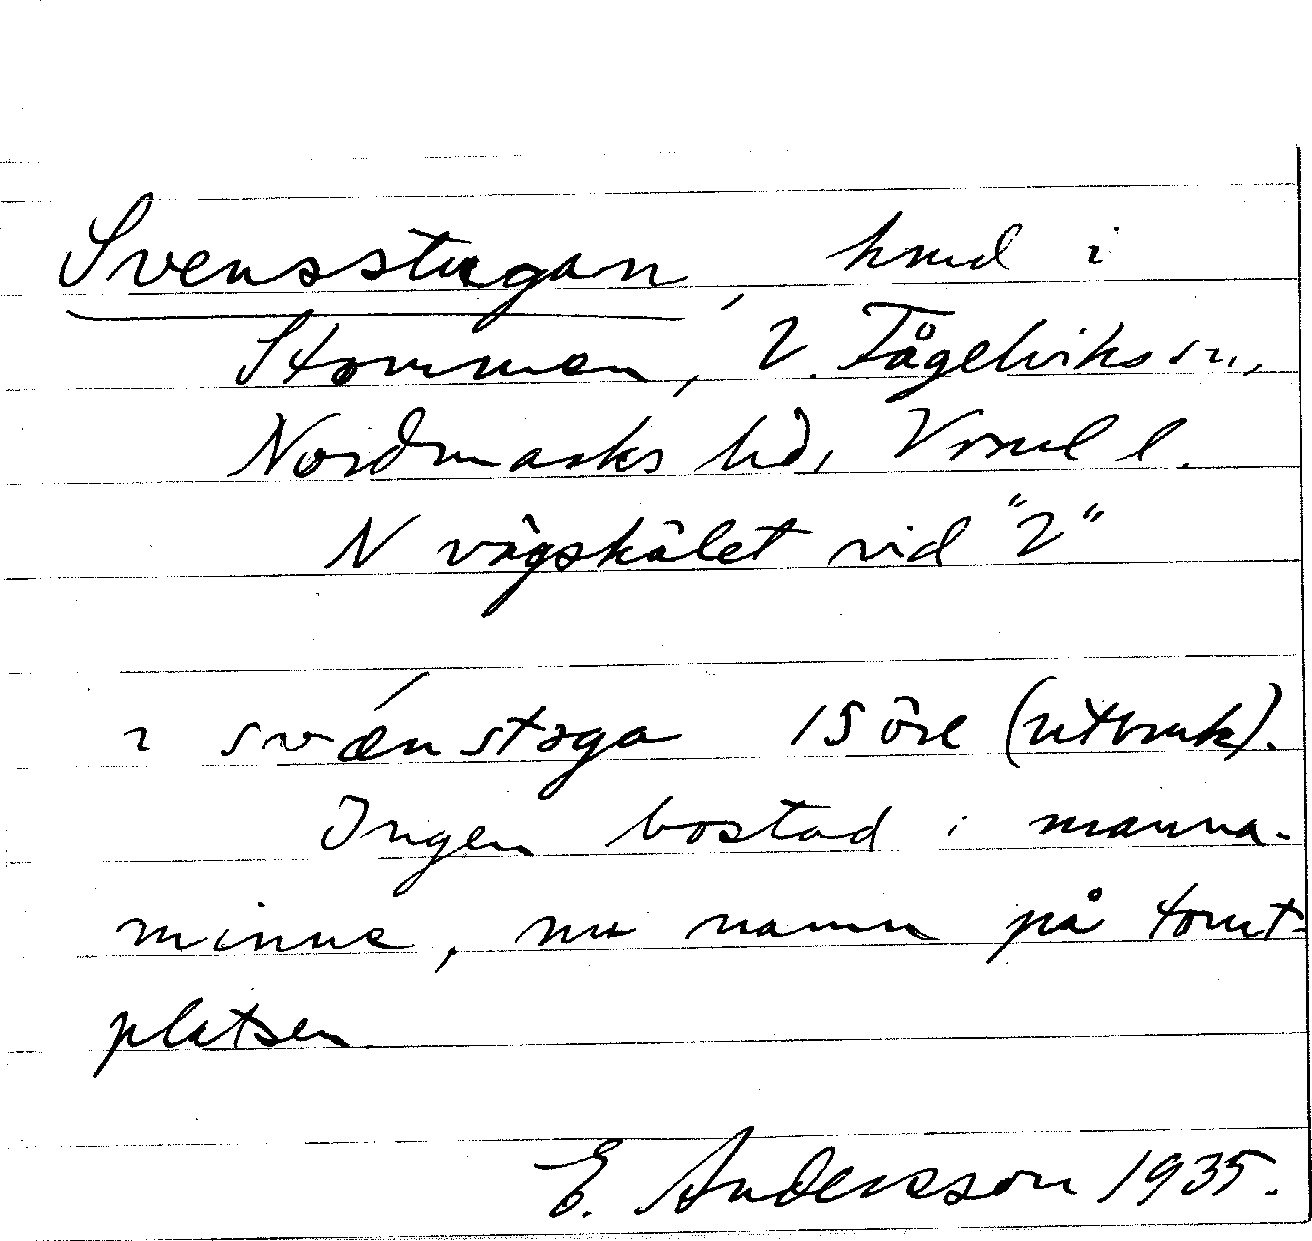 Svensstugan, hmd i
Stommen, V. Fågelviks sn,
Nordmarks hd, Vrml l.
N vägskälet vid "V"
i svǽnstoga 15 öre (utbruk).
Ingen bostad i manna-
minne, nu namn på tomt-
platsen
E. Andersson 1935.